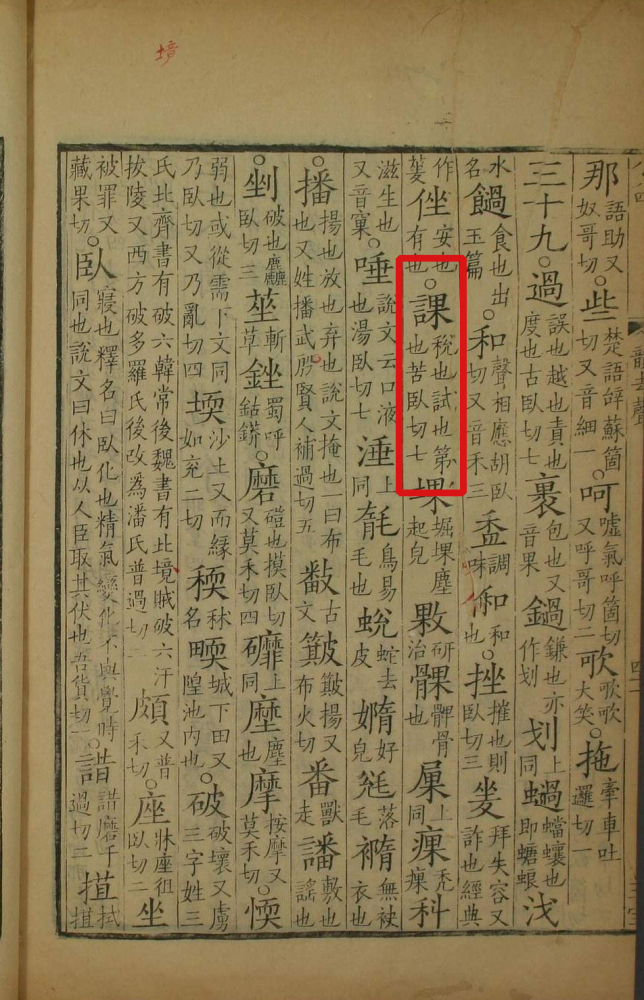 境
那語助又奴哥切。些楚語辤蘇箇切又音細一呵噓氣呼箇切又呼哥切二歌歌歌大笑。拖牽車吐邏切一
三十九。過誤也越也責也度也古臥切七裹包也又音果鍋鎌也亦作划划上同蝸蟷蠰也即螗蜋
水名食也出玉篇。和聲相應胡臥切又音禾三盉調味俰和也。挫摧也則臥切三夎拜失容又詐也經典
作蓌㘴安也有也。課稅也試也第也苦臥切七堁堀堁塵起皃敤研治也髁髀骨上同禿科
滋生也又音窠。唾說文云口液也湯臥切七涶上同毻鳥易毛也蛻蛇去皮嫷好皃毤落毛無袂衣也
。播揚也放也弃也說文掩也一曰布也又姓播武殷賢人補過切五古文簸簸揚又布火切番獸走譒敷也謠也
。剉破也麤臥切三莝斬草銼蜀呼鈷鏻。磨磑也摸臥切又莫禾切四上同塺塵也摩按摩又莫禾切。愞
弱也或從需下文同乃臥切又乃亂切四堧沙土又而緣如兗二切稬秫名城下田又隍池內也。破破壞又虜三字姓三
氏北齊書有破六韓常後魏書有北境賊破六汗拔陵又西方破多羅氏後改爲潘氏普過切頗又普禾切。座牀座徂臥切二坐
被罪又藏果切。臥寢也釋名曰臥化也精氣變化不與覺時同也說文曰休也从人臣取其伏也吾貨切一。磨千過切二拭